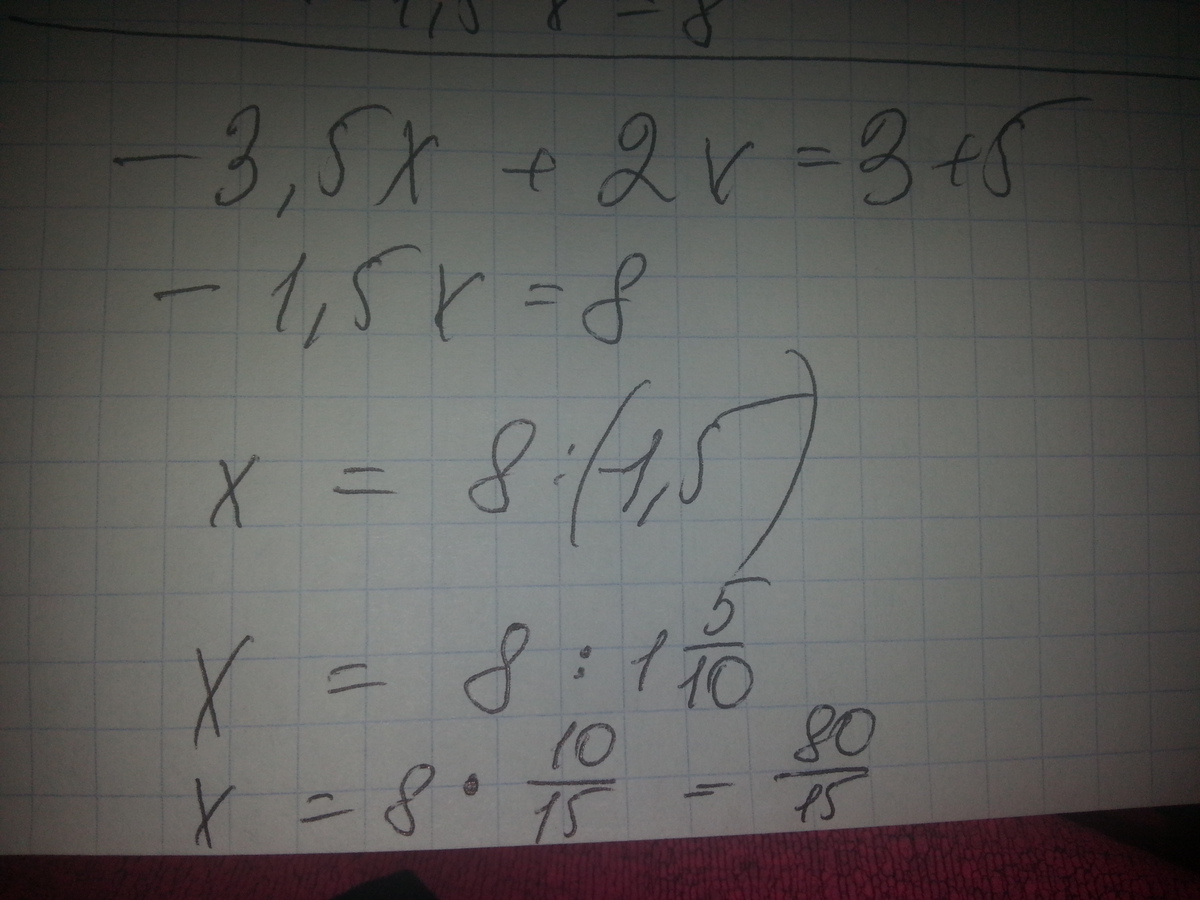 -1,5 8 = 8
-3,5x + 2x = 3 + 5
-1,5x = 8
x = 8 : (-1,5)
x = 8 : 1 5/10
x = 8 · 10/15 = 80/15